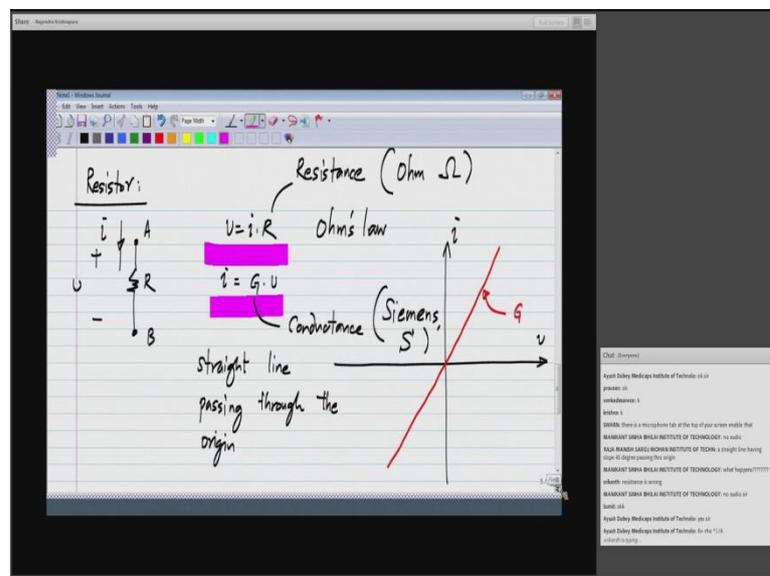 Share - Nagendra Krishnapura
Full Screen
Note1 - Windows Journal
Edit View Insert Actions Tools Help
Page Width
Resistor:
Resistance (Ohm Ω)
i A
+
v R
-
B
v = i.R Ohm's law
i = G.v
Conductance (Siemens, S)
straight line
passing through the
origin
i
G
v
Chat (Everyone)
Ayush Dubey Medicaps Institute of Technolo: ok sir
praveen: ok
venkadesaness: k
krishna: k
SWARN: there is a microphone tab at the top of your screen enable that
MANIKANT SINHA BHILAI INSTITUTE OF TECHNOLOGY: no audio
RAJA MANISH SAROJ MOHAN INSTITUTE OF TECHN: a straight line having
slope 45 degree passing thru origin
MANIKANT SINHA BHILAI INSTITUTE OF TECHNOLOGY: what happens????????
srikanth: resistance is wrong
MANIKANT SINHA BHILAI INSTITUTE OF TECHNOLOGY: no audio sir
Sumit: okk
Ayush Dubey Medicaps Institute of Technolo: yes sir
Ayush Dubey Medicaps Institute of Technolo:
srikanth is typing...